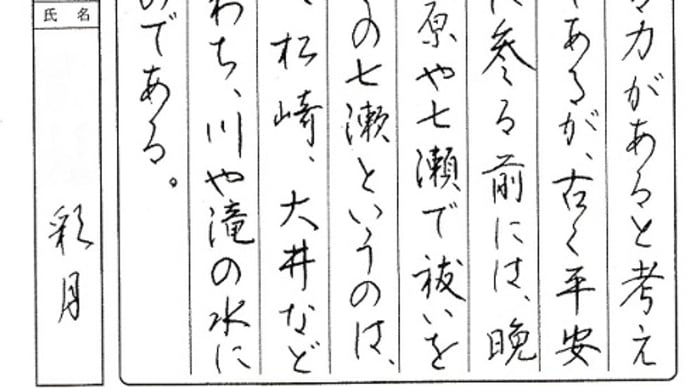 力があると考え
あるが、古く平安
に参る前には、晩
原や七瀬で祓いを
の七瀬というのは、
、松崎、大井など
わち、川や滝の水に
のである。
氏名
彩月